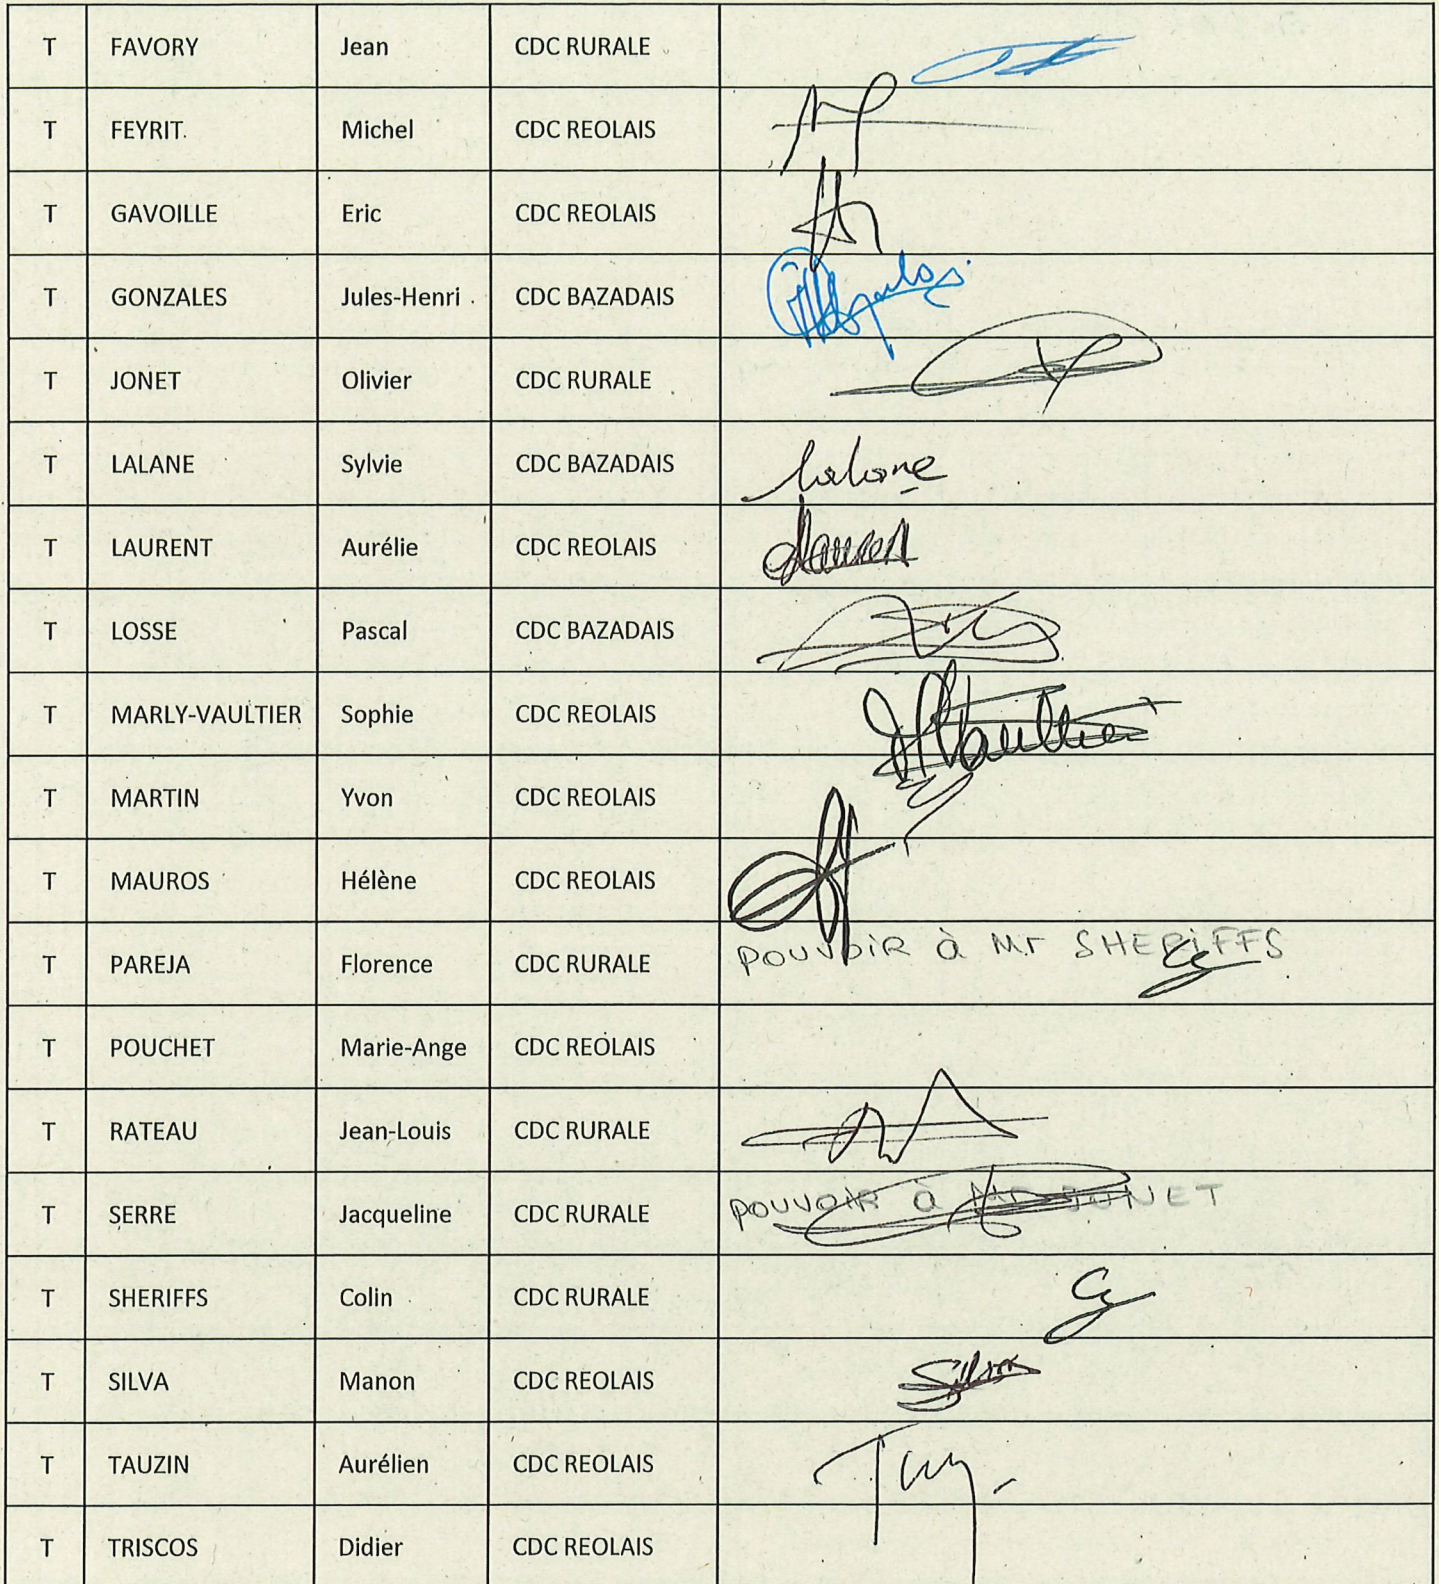 T FAVORY Jean CDC RURALE
T FEYRIT Michel CDC REOLAIS
T GAVOILLE Eric CDC REOLAIS
T GONZALES Jules-Henri CDC BAZADAIS
T JONET Olivier CDC RURALE
T LALANE Sylvie CDC BAZADAIS Lalane
T LAURENT Aurélie CDC REOLAIS
T LOSSE Pascal CDC BAZADAIS
T MARLY-VAULTIER Sophie CDC REOLAIS
T MARTIN Yvon CDC REOLAIS
T MAUROS Hélène CDC REOLAIS
T PAREJA Florence CDC RURALE POUVOIR à Mr SHERIFFS
T POUCHET Marie-Ange CDC REOLAIS
T RATEAU Jean-Louis CDC RURALE
T SERRE Jacqueline CDC RURALE POUVOIR à Mr JONET
T SHERIFFS Colin CDC RURALE
T SILVA Manon CDC REOLAIS Silva
T TAUZIN Aurélien CDC REOLAIS
T TRISCOS Didier CDC REOLAIS